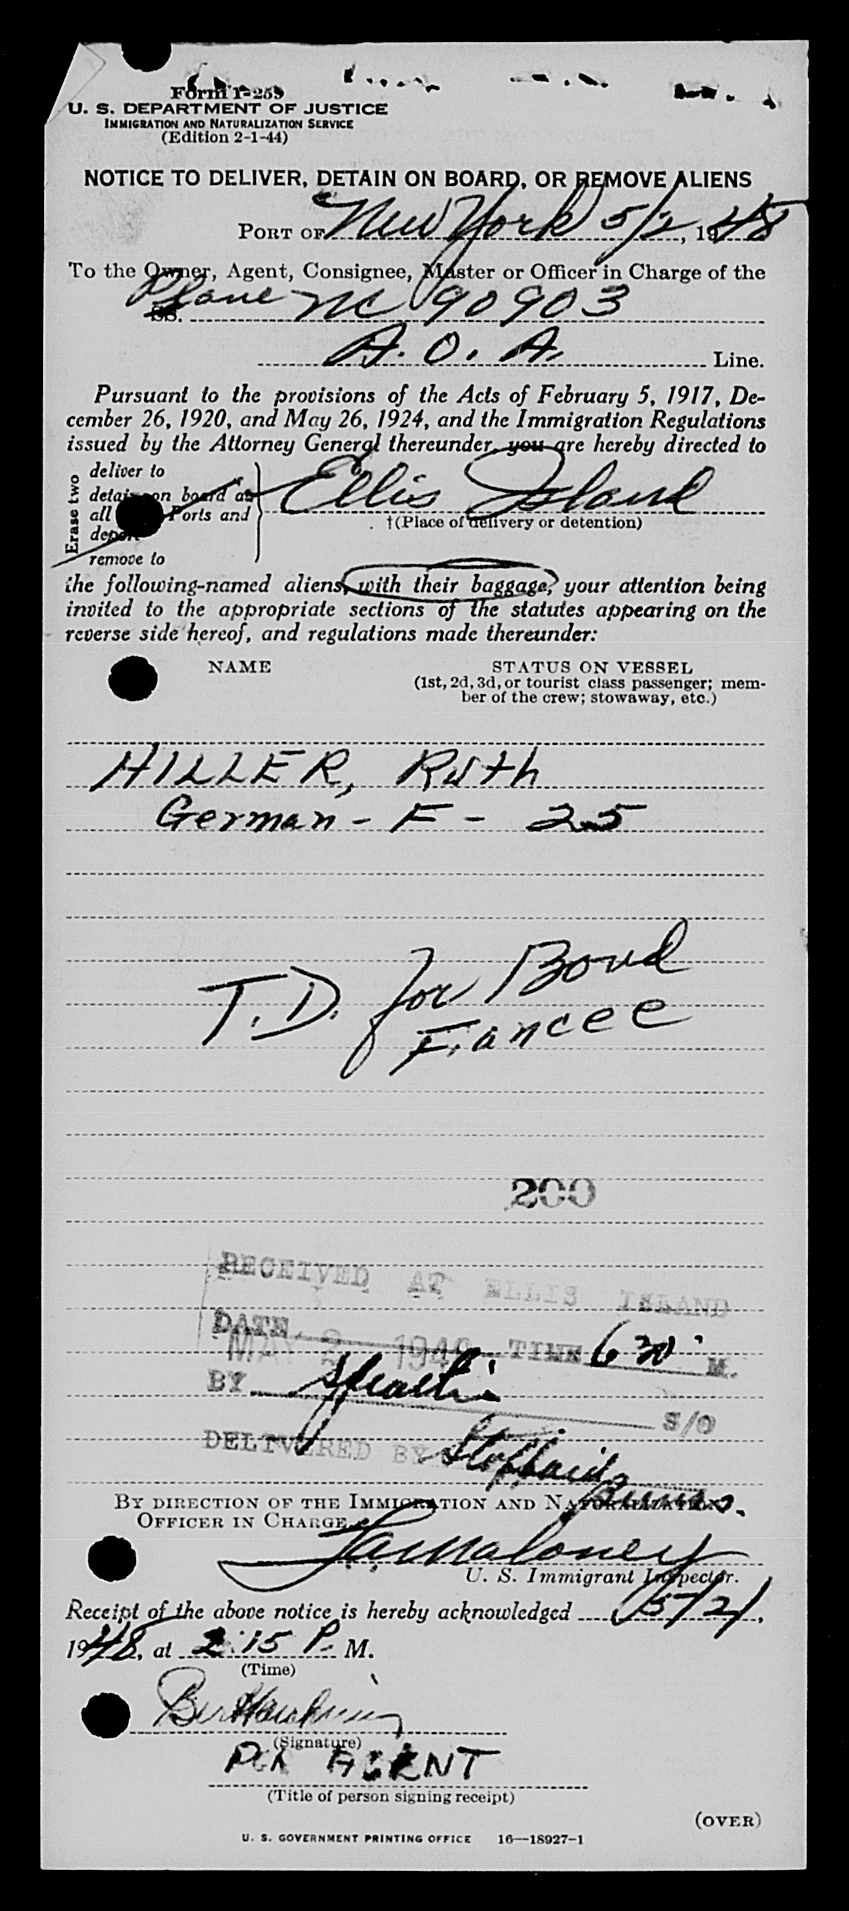 Form I-259
U. S. DEPARTMENT OF JUSTICE
IMMIGRATION AND NATURALIZATION SERVICE
(Edition 2-1-44)
NOTICE TO DELIVER, DETAIN ON BOARD, OR REMOVE ALIENS
PORT OF New York 5/2, 1948
To the Owner, Agent, Consignee, Master or Officer in Charge of the
SS. Plane NC 90903
A. O. A. Line.
Pursuant to the provisions of the Acts of February 5, 1917, De-
cember 26, 1920, and May 26, 1924, and the Immigration Regulations
issued by the Attorney General thereunder, you are hereby directed to
Erase two
deliver to
detain on board at
all Ports and
deport
remove to
Ellis Island
†(Place of delivery or detention)
the following-named aliens, with their baggage, your attention being
invited to the appropriate sections of the statutes appearing on the
reverse side hereof, and regulations made thereunder:
NAME STATUS ON VESSEL
(1st, 2d, 3d, or tourist class passenger; mem-
ber of the crew; stowaway, etc.)
HILLER, Ruth
German - F - 25
T. D. for Bond
Fiancee
200
RECEIVED AT ELLIS ISLAND
DATE MAY 2 1948 TIME 6 30 M.
BY S/O
DELIVERED BY
BY DIRECTION OF THE IMMIGRATION AND NATURALIZATION
OFFICER IN CHARGE
Maloney
U. S. Immigrant Inspector.
Receipt of the above notice is hereby acknowledged 5/2,
1948, at 2:15 P. M.
(Time)
(Signature)
AGENT
(Title of person signing receipt)
(OVER)
U. S. GOVERNMENT PRINTING OFFICE 16—18927-1